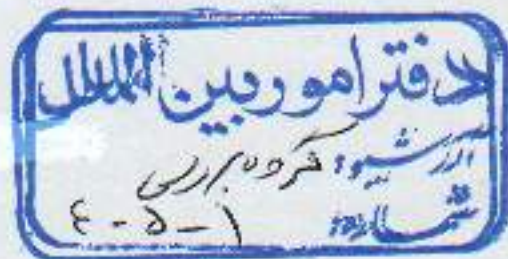 دفتر امور بین الملل
آرشیو: گروه بررسی
شماره: ۱-۵-۴